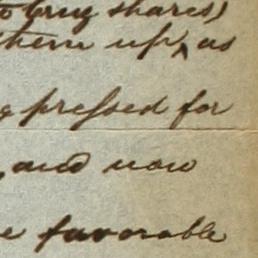 to buy shares)
them up, as
pressed for
, and now
favorable